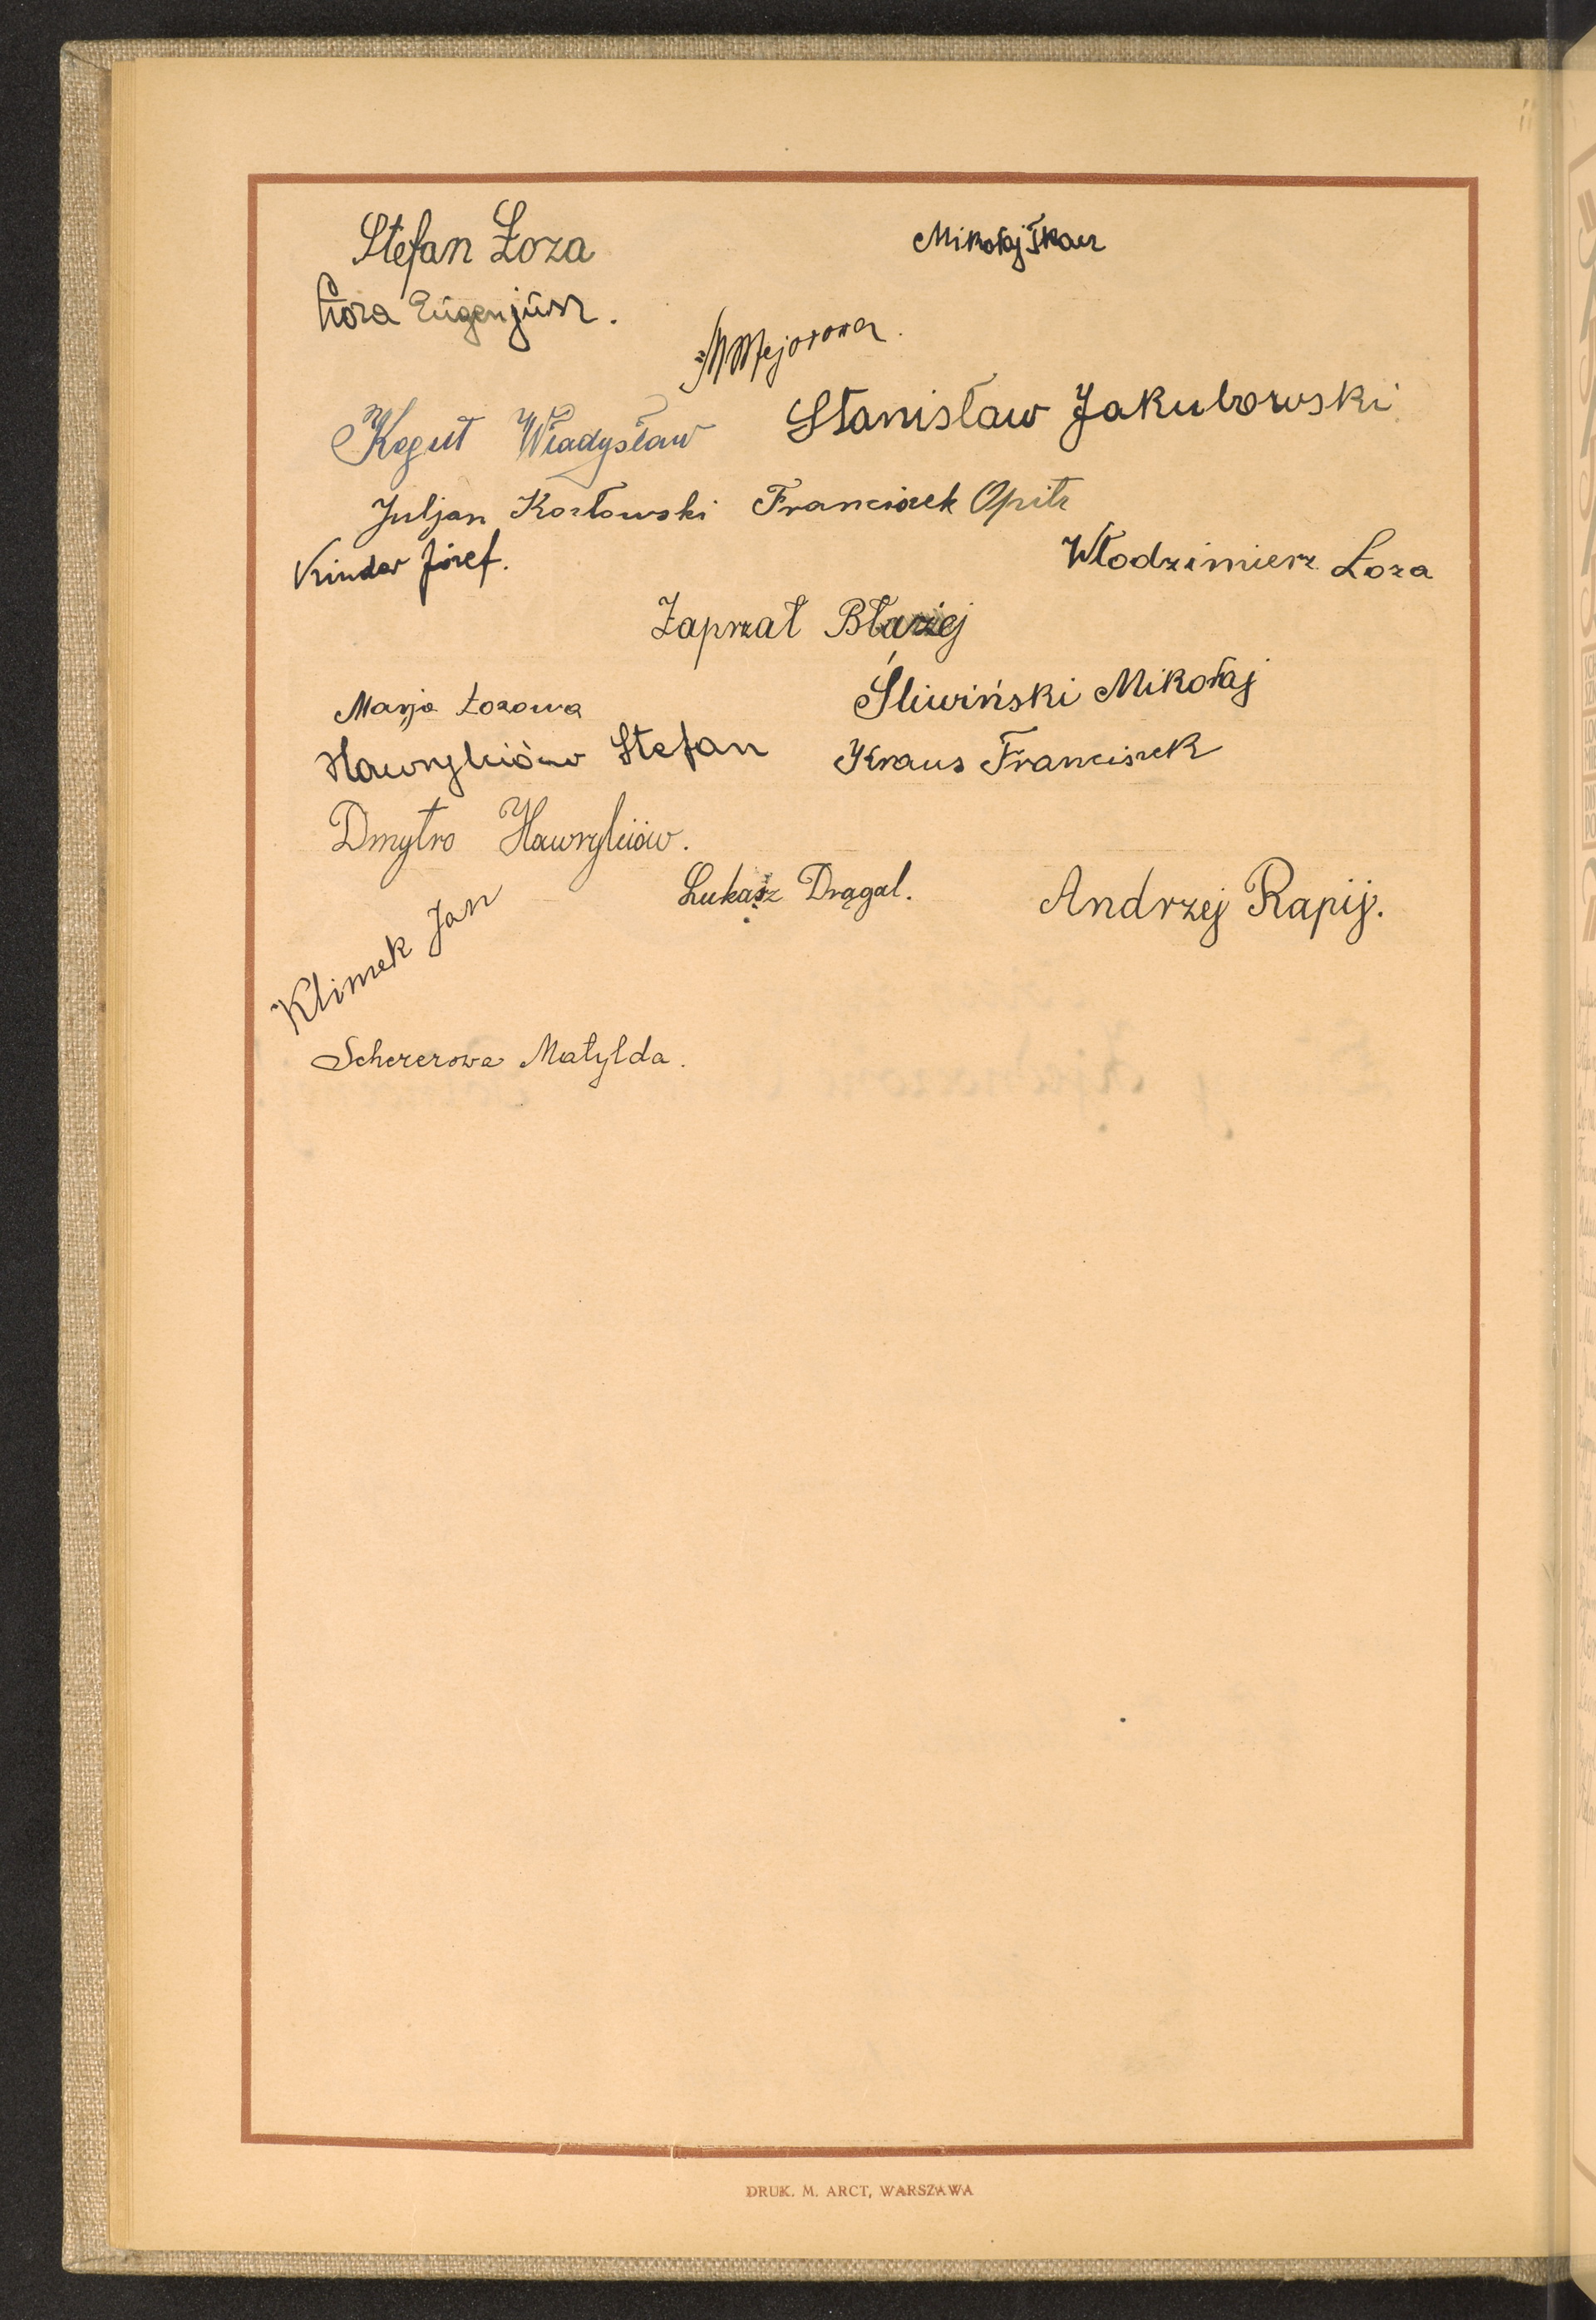 Stefan Łoza
Mikołaj Tkacz
Łoza Eugenjusz.
M Mejorowa.
Kogut Władysław
Stanisław Jakubowski
Juljan Kozłowski Franciszek Opitz
Kinder Józef.
Włodzimierz Łoza
Zaprzał Błażej
Marja Łozowa
Śliwiński Mikołaj
Hawryluiów Stefan
Kraus Franciszek
Dmytro Hawryluiów.
Łukasz Drągal.
Andrzej Rapij.
Klimek Jan
Schererowa Matylda.
DRUK. M. ARCT, WARSZAWA